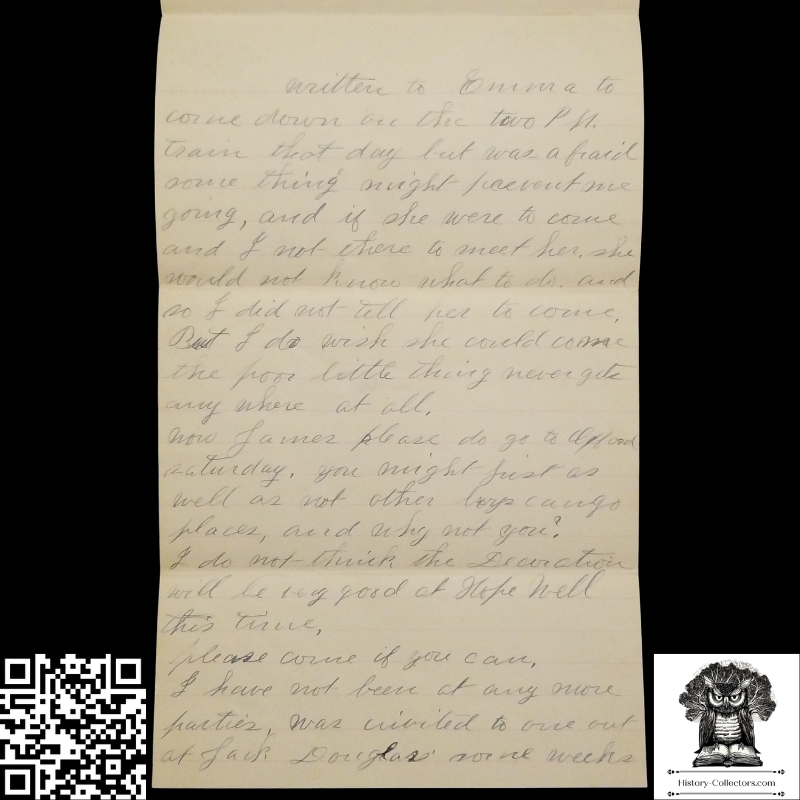 written to Emma to
come down on the two P M.
train that day but was afraid
some thing might prevent me
going, and if she were to come
and I not there to meet her, she
would not know what to do. and
so I did not tell her to come.
But I do wish she could come
the poor little thing never gets
any where at all.
now James please do go to
saturday. you might just as
well as not other boys can go
places, and why not you?
I do not think the Decoration
will be very good at Hope Well
this time,
please come if you can,
I have not been at any more
parties, was invited to one out
at Jack Douglas' some weeks
History-Collectors.com